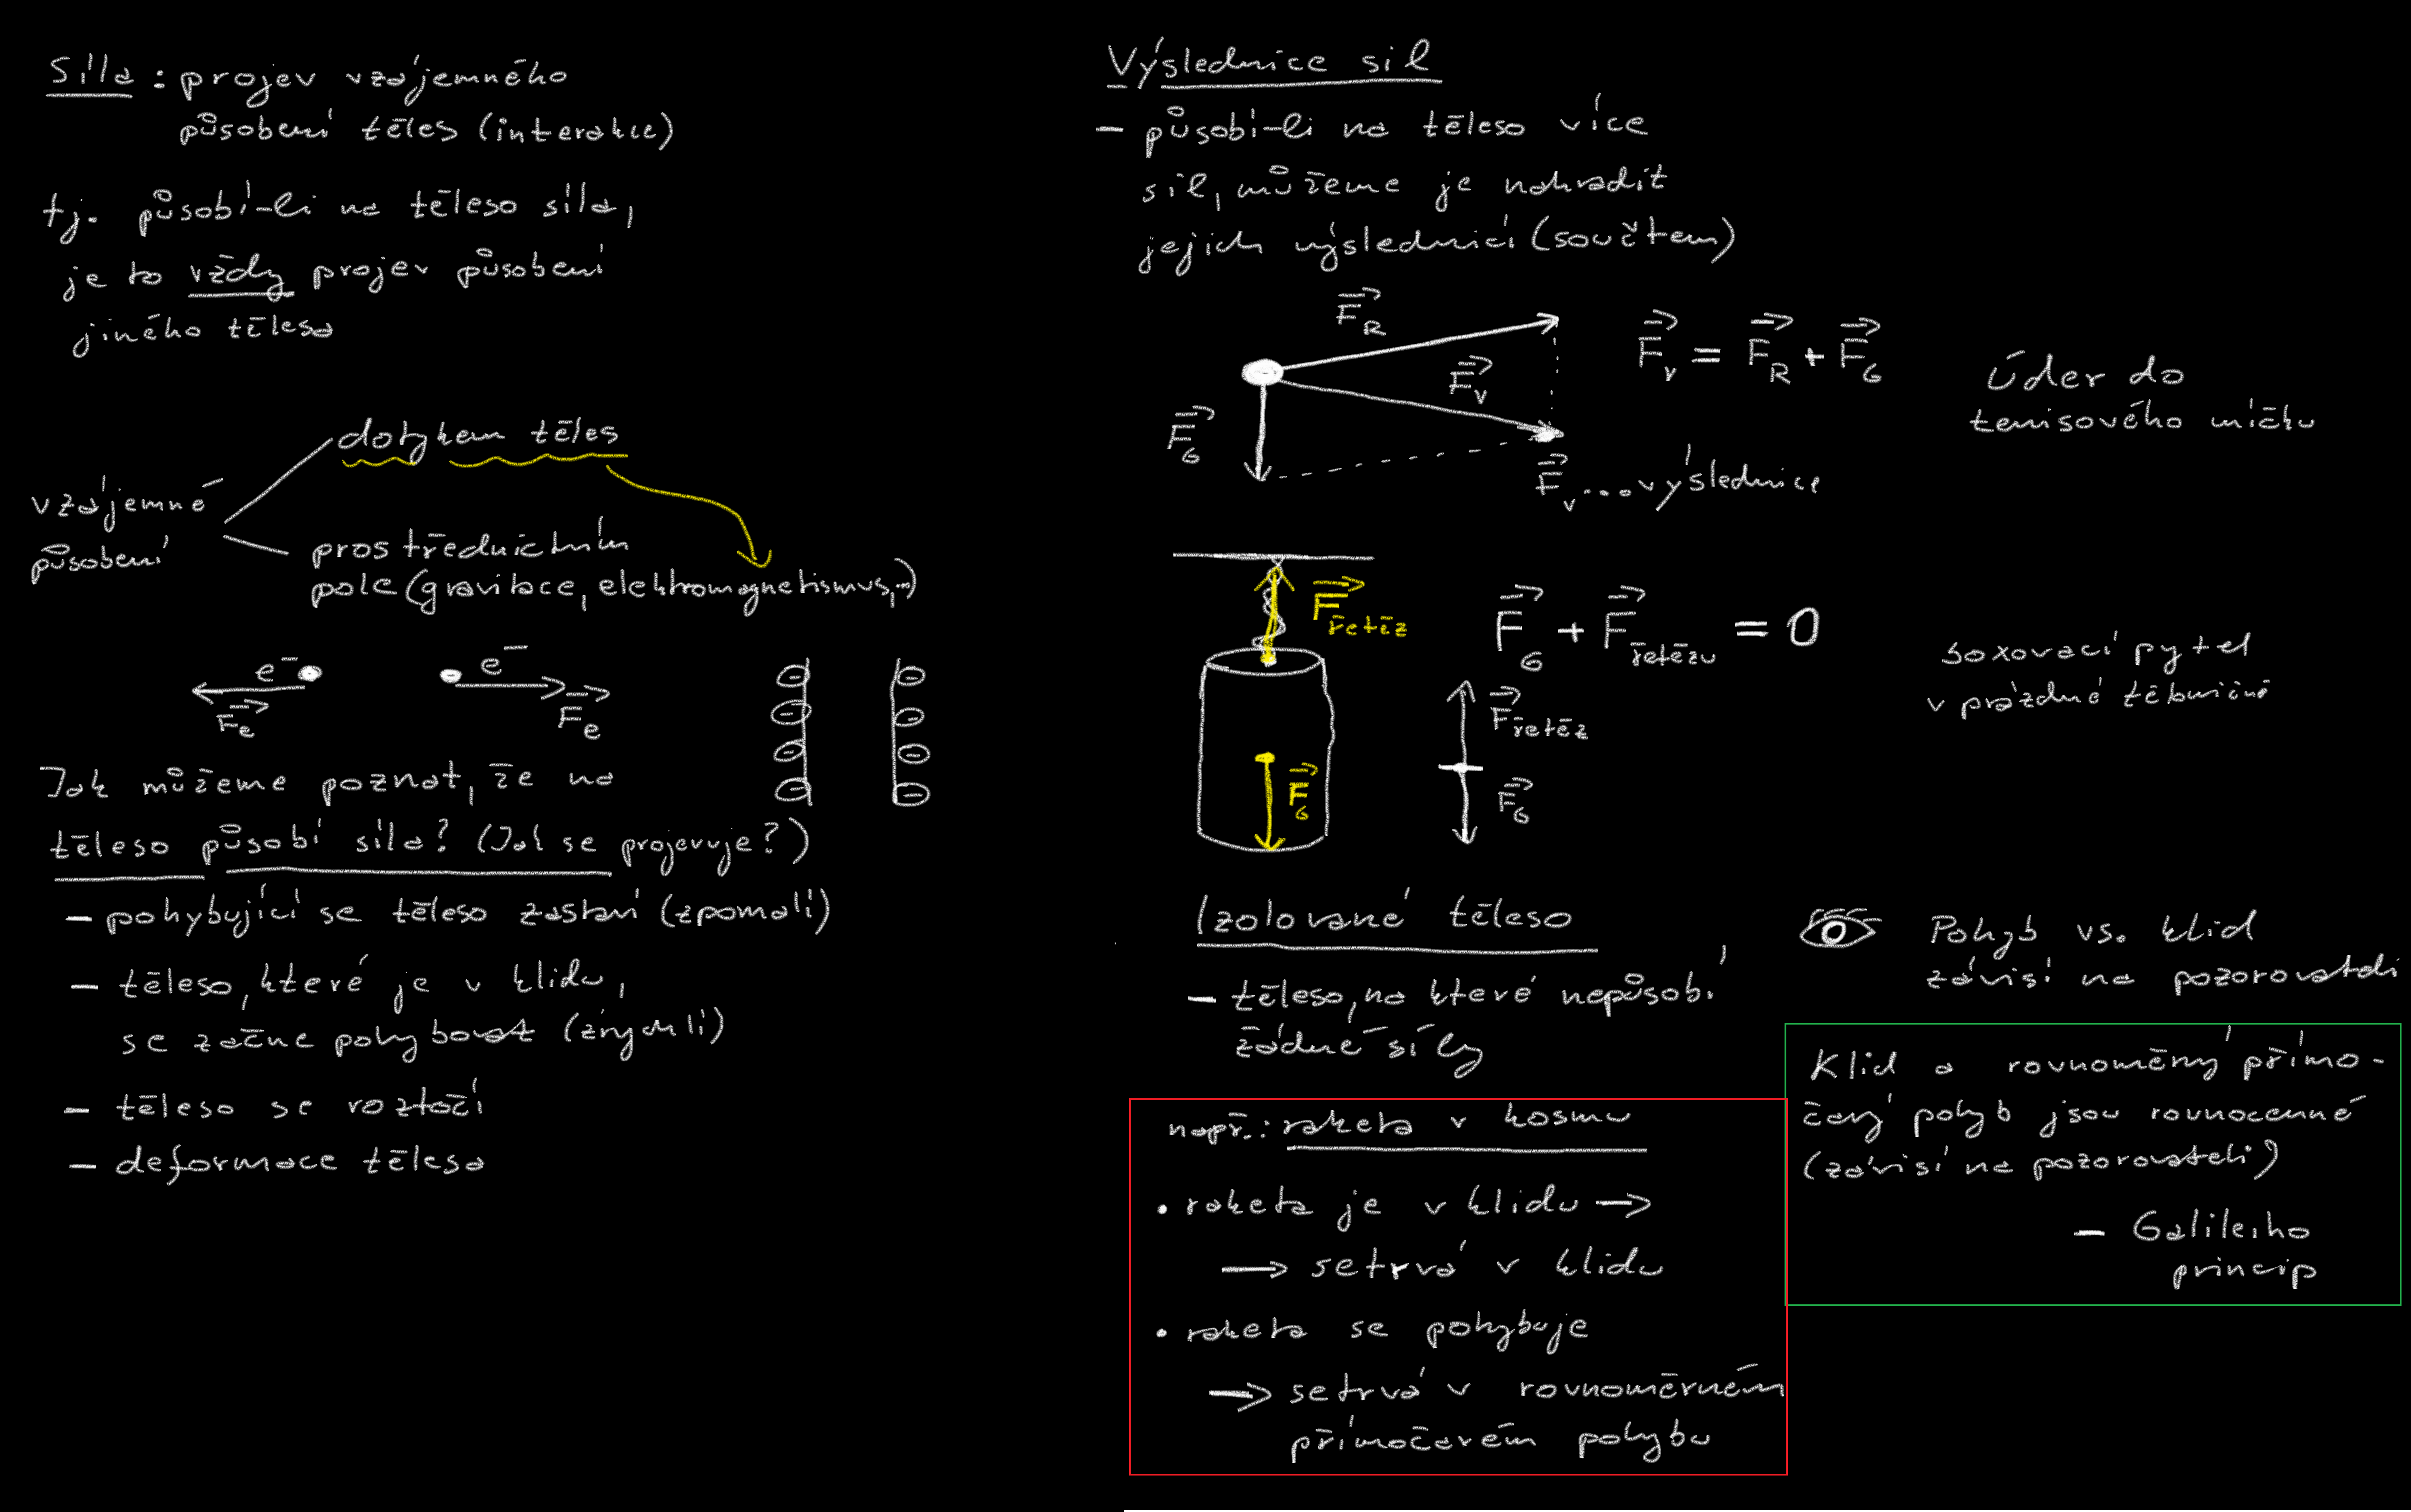 Síla : projev vzájemného
působení těles (interakce)
tj. působí-li na těleso síla,
je to vždy projev působení
jiného tělesa
vzájemné
působení
dotykem těles
prostřednictvím
pole (gravitace, elektromagnetismus,...)
e⁻
e⁻
Fe
Fe
Jak můžeme poznat, že na
těleso působí síla? (Jak se projevuje?)
– pohybující se těleso zastaví (zpomalí)
– těleso, které je v klidu,
se začne pohybovat (zrychlí)
– těleso se roztočí
– deformace tělesa
Výslednice sil
– působí-li na těleso více
sil, můžeme je nahradit
jejich výslednicí (součtem)
F_R
F_V
F_G
F_v = F_R + F_G
F_v .... výslednice
Úder do
tenisového míčku
F_řetěz
F_G
F_G + F_řetězu = 0
F_řetěz
F_G
boxovací pytel
v prázdné tělocvičně
Izolované těleso
– těleso, na které nepůsobí
žádné síly
např.: raketa v kosmu
• raketa je v klidu →
→ setrvá v klidu
• raketa se pohybuje
→ setrvá v rovnoměrném
přímočarém pohybu
Pohyb vs. klid
závisí na pozorovateli
Klid a rovnoměrný přímo-
čarý pohyb jsou rovnocenné
(závisí na pozorovateli)
– Galileiho
princip